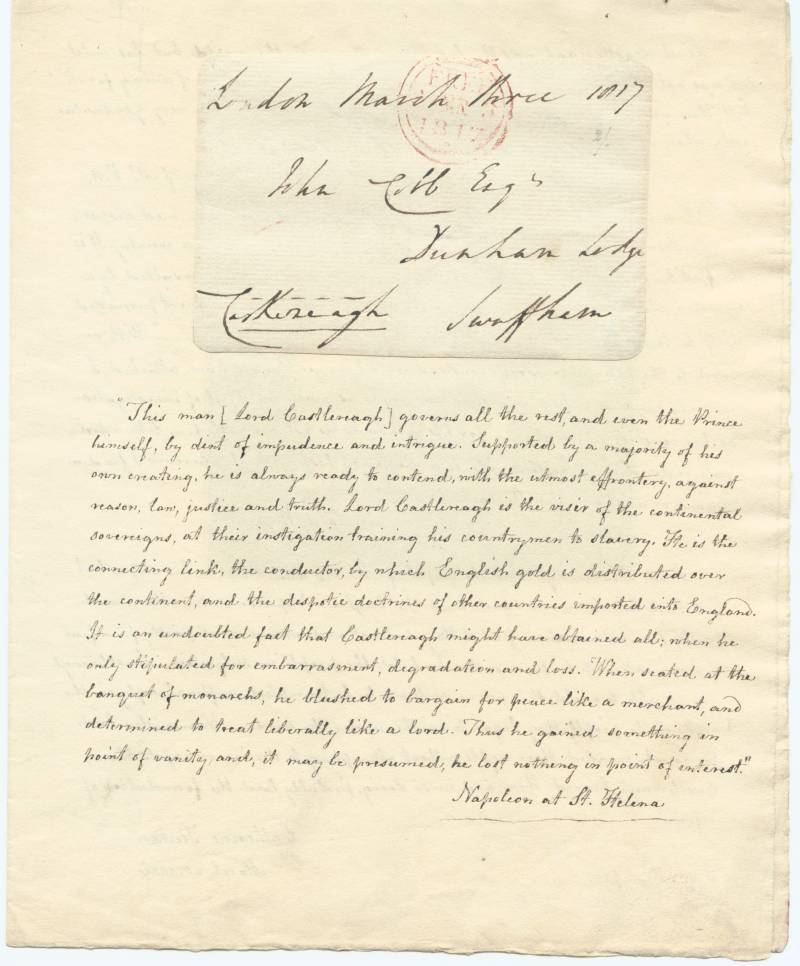 London March three 1817
FREE
1817
2/.
John Cobb Esqr
Dunham Lodge
Castlereagh Swaffham
"This man [Lord Castlereagh] governs all the rest, and even the Prince
himself, by dint of impudence and intrigue. Supported by a majority of his
own creating, he is always ready to contend, with the utmost effrontery, against
reason, law, justice and truth. Lord Castlereagh is the visir of the continental
sovereigns, at their instigation training his countrymen to slavery. He is the
connecting link, the conductor, by which English gold is distributed over
the continent, and the despotic doctrines of other countries imported into England.
It is an undoubted fact that Castlereagh might have obtained all; when he
only stipulated for embarrasment, degradation and loss. When seated at the
banquet of monarchs, he blushed to bargain for peace like a merchant, and
determined to treat liberally like a lord. Thus he gained something in
point of vanity, and, it may be presumed, he lost nothing in point of interest."
Napoleon at St. Helena